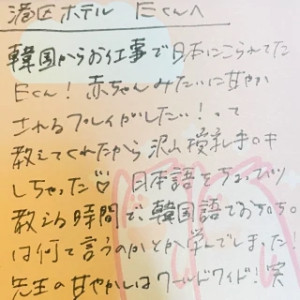 港区ホテル Eくんへ
韓国からお仕事で日本にこられてた
Eくん！赤ちゃんみたいに甘やか
されるプレイがしたい！って
教えてくれたから沢山授乳手○キ
しちゃった♡ 日本語をちょっピリ
教える時間で、韓国語でお○ち○
は何て言うのかとか学んでしまった！
先生の甘やかしはワールドワイド！笑